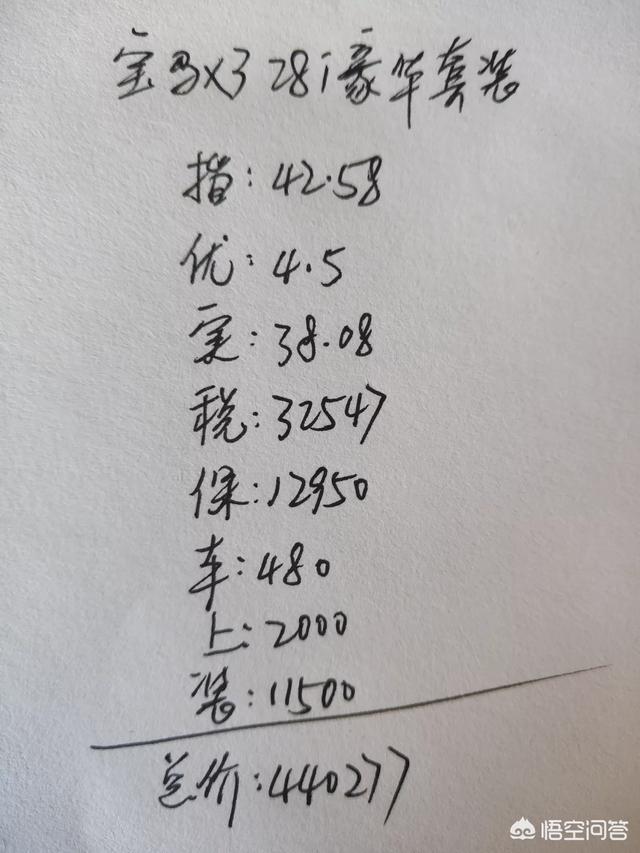 宝马X3 28i豪华套装
指:42.58
优:4.5
实:38.08
税:32547
保:12950
车:480
上:2000
装:11500
总价:440277
悟空问答